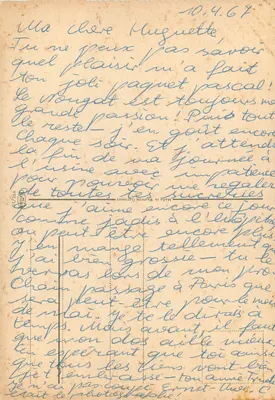 10.4.67
Ma chère Huguette,
Tu ne peux pas savoir
quel plaisir m'a fait
ton joli paquet pascal!
Le Nougat est toujours ma
grande passion! Puis tout
le reste - j'en goût encore
chaque soir. Et j'attends
la fin de ma journée à
l'usine avec impatience
pour pouvoir me régaler
de toutes les sucreries
que j'aime encore ce jour
comme jadis à
ou peut être encore plus
J'en mange tellement q
j'ai bien grossie - tu le
verras lors de mon pro
chain passage à Paris que
sera peut-être pour le mois
de mai. Je te le dirais à
temps. Mais avant, il faut
que mon dos aille mieux
En espérant que toi ainsi
que tous les tiens vont bien
je t'embrasse - ton amie
je n'ai pas Ernst
était le photographe!